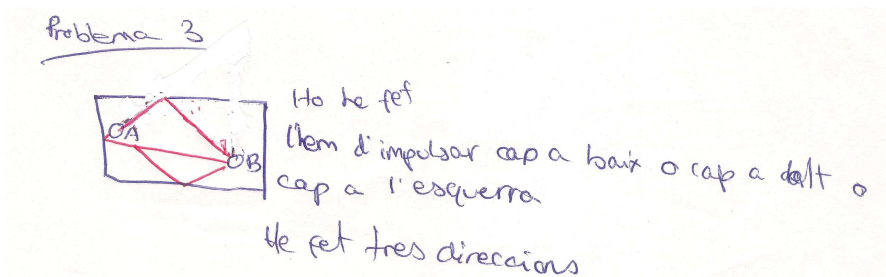 Problema 3
Ho he fet
A
l'hem d'impulsar cap a baix o cap a dalt o
B
cap a l'esquerra
He fet tres direccions